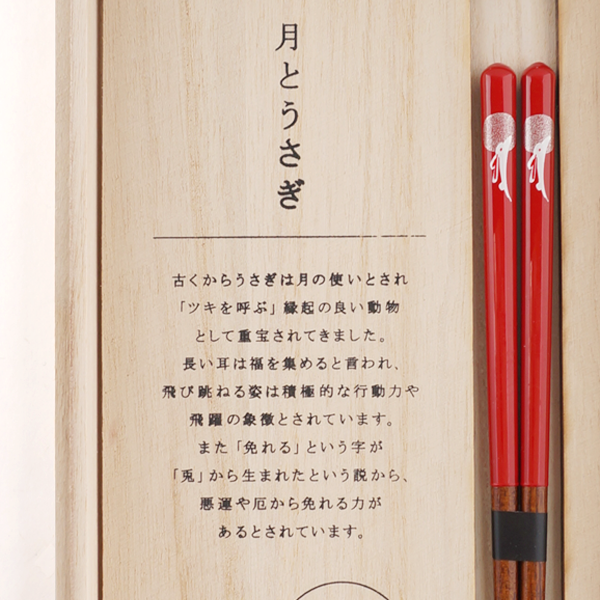 月とうさぎ
古くからうさぎは月の使いとされ
「ツキを呼ぶ」縁起の良い動物
として重宝されてきました。
長い耳は福を集めると言われ、
飛び跳ねる姿は積極的な行動力や
飛躍の象徴とされています。
また「免れる」という字が
「兎」から生まれたという説から、
悪運や厄から免れる力が
あるとされています。